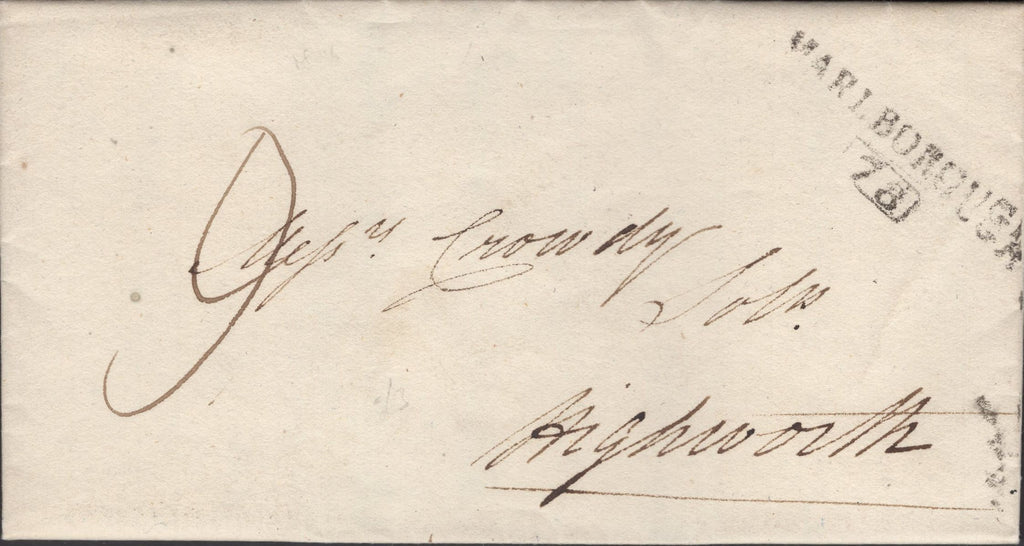 MARLBOROUGH
78
9
Messrs Crowdy
Solrs
Highworth